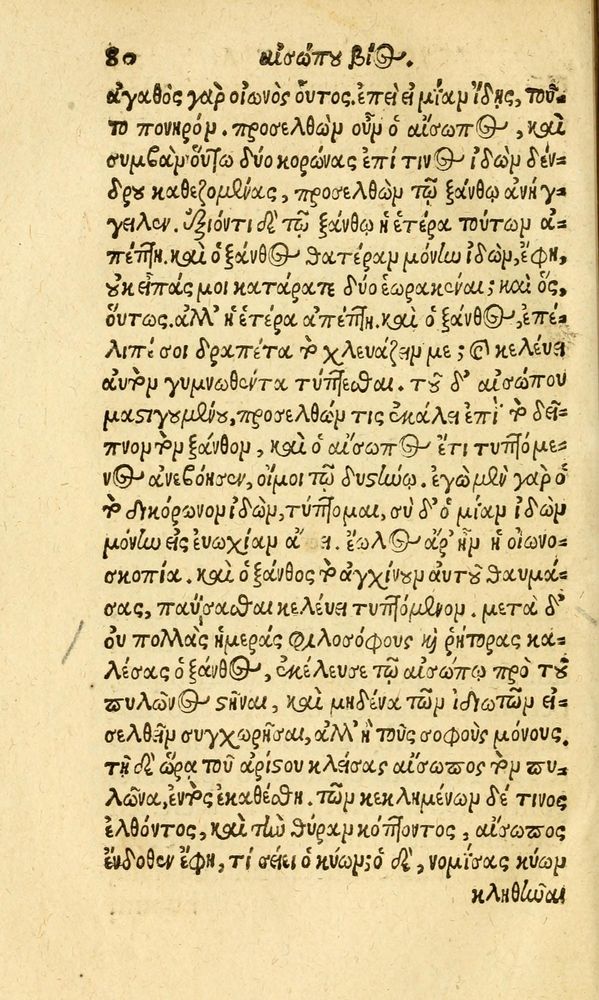 80 αἰσώπου βίος.
ἀγαθὸς γὰρ οἰωνὸς οὗτος. ἐπεὶ εἰ μίαν ἴδῃς, τοῦ-
το πονηρόν. προσελθὼν οὖν ὁ αἴσωπος, καὶ
συμβὰν οὕτω δύο κορώνας ἐπί τινος ἰδὼν δέν-
δρου καθεζομένας, προσελθὼν τῷ ξάνθῳ ἀνήγ-
γειλεν. ἐξιόντι δὲ τῷ ξάνθῳ ἡ ἑτέρα τούτων ἀ-
πέπτη. καὶ ὁ ξάνθος θατέραν μόνην ἰδὼν, ἔφη,
οὐκ εἶπάς μοι κατάρατε δύο ἑωρακέναι; καὶ ὅς,
οὕτως. ἀλλ' ἡ ἑτέρα ἀπέπτη. καὶ ὁ ξάνθος, ἐπέ-
λιπέ σοι δραπέτα τὸ χλευάζειν με; καὶ κελεύει
αὐτὸν γυμνωθέντα τύπτεσθαι. τοῦ δ' αἰσώπου
μαστιγουμένου, προσελθών τις ἐκάλει ἐπὶ τὸ δεῖ-
πνον τὸν ξάνθον, καὶ ὁ αἴσωπος ἔτι τυπτόμε-
νος ἀνεβόησεν, οἴμοι τῷ δυστήνῳ. ἐγὼ μὲν γὰρ ὁ
τὸ δικόρωνον ἰδὼν, τύπτομαι, σὺ δ' ὁ μίαν ἰδὼν
μόνην εἰς εὐωχίαν ἄ ει. ἕωλος ἄρ' ἦν ἡ οἰωνο-
σκοπία. καὶ ὁ ξάνθος τὸ ἀγχίνουν αὐτοῦ θαυμά-
σας, παύσασθαι κελεύει τυπτόμενον. μετὰ δ'
οὐ πολλὰς ἡμέρας φιλοσόφους καὶ ῥήτορας κα-
λέσας ὁ ξάνθος, ἐκέλευσε τῷ αἰσώπῳ πρὸ τοῦ
πυλῶνος στῆναι, καὶ μηδένα τῶν ἰδιωτῶν εἰ-
σελθεῖν συγχωρῆσαι, ἀλλ' ἢ τοὺς σοφοὺς μόνους.
τῇ δὲ ὥρᾳ τοῦ ἀρίστου κλείσας αἴσωπος τὸν πυ-
λῶνα, ἐντὸς ἐκαθέσθη. τῶν κεκλημένων δέ τινος
ἐλθόντος, καὶ τὴν θύραν κόπτοντος, αἴσωπος
ἔνδοθεν ἔφη, τί σείει ὁ κύων; ὁ δὲ, νομίσας κύων
κληθῆναι